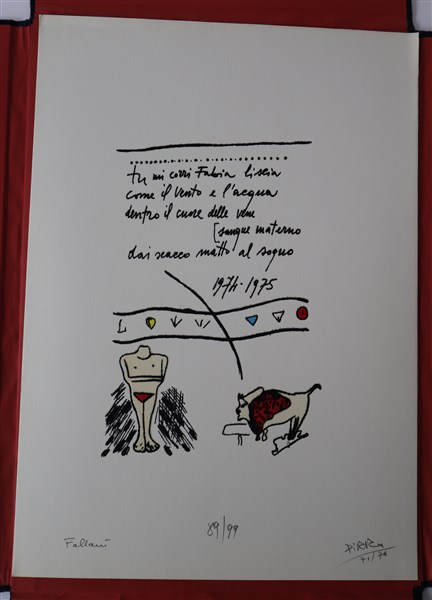 tu mi corri Fabia liscia
come il vento e l'acqua
dentro il cuore delle vene
[sangue materno
dai scacco matto al sogno
1974-1975
L
89/99
Fallani